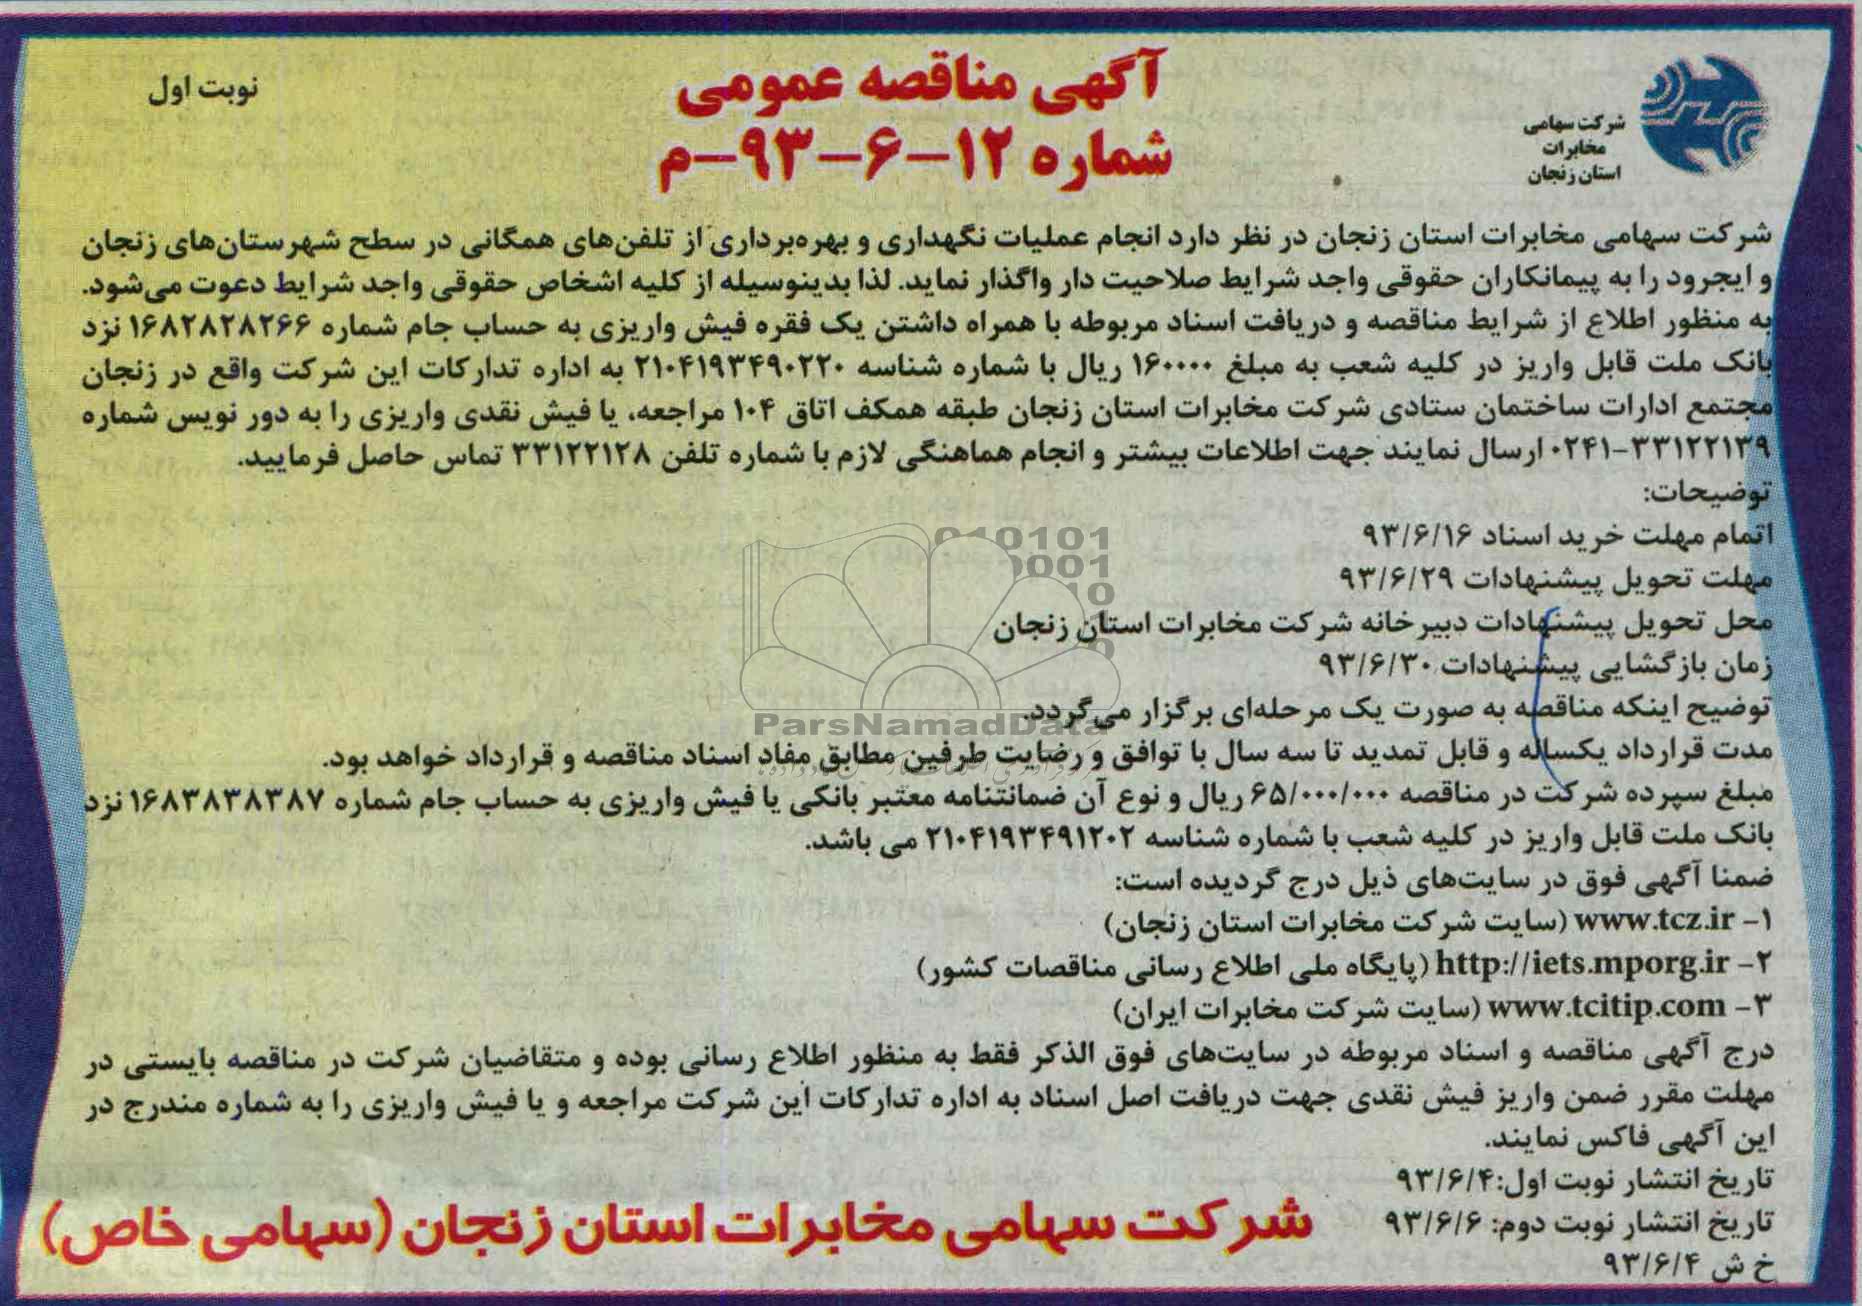 نوبت اول
آگهی مناقصه عمومی
شماره ۱۲–۶–۹۳–م
شرکت سهامی
مخابرات
استان زنجان
شرکت سهامی مخابرات استان زنجان در نظر دارد انجام عملیات نگهداری و بهره‌برداری از تلفن‌های همگانی در سطح شهرستان‌های زنجان
و ایجرود را به پیمانکاران حقوقی واجد شرایط صلاحیت دار واگذار نماید. لذا بدینوسیله از کلیه اشخاص حقوقی واجد شرایط دعوت می‌شود.
به منظور اطلاع از شرایط مناقصه و دریافت اسناد مربوطه با همراه داشتن یک فقره فیش واریزی به حساب جام شماره ۱۶۸۲۸۲۸۲۶۶ نزد
بانک ملت قابل واریز در کلیه شعب به مبلغ ۱۶۰۰۰۰ ریال با شماره شناسه ۲۱۰۴۱۹۳۴۹۰۲۲۰ به اداره تدارکات این شرکت واقع در زنجان
مجتمع ادارات ساختمان ستادی شرکت مخابرات استان زنجان طبقه همکف اتاق ۱۰۴ مراجعه، یا فیش نقدی واریزی را به دور نویس شماره
۰۲۴۱-۳۳۱۲۲۱۳۹ ارسال نمایند جهت اطلاعات بیشتر و انجام هماهنگی لازم با شماره تلفن ۳۳۱۲۲۱۲۸ تماس حاصل فرمایید.
توضیحات:
اتمام مهلت خرید اسناد ۹۳/۶/۱۶
مهلت تحویل پیشنهادات ۹۳/۶/۲۹
محل تحویل پیشنهادات دبیرخانه شرکت مخابرات استان زنجان
زمان بازگشایی پیشنهادات ۹۳/۶/۳۰
توضیح اینکه مناقصه به صورت یک مرحله‌ای برگزار می‌گردد.
مدت قرارداد یکساله و قابل تمدید تا سه سال با توافق و رضایت طرفین مطابق مفاد اسناد مناقصه و قرارداد خواهد بود.
مبلغ سپرده شرکت در مناقصه ۶۵/۰۰۰/۰۰۰ ریال و نوع آن ضمانتنامه معتبر بانکی یا فیش واریزی به حساب جام شماره ۱۶۸۳۸۳۸۳۸۷ نزد
بانک ملت قابل واریز در کلیه شعب با شماره شناسه ۲۱۰۴۱۹۳۴۹۱۲۰۲ می باشد.
ضمنا آگهی فوق در سایت‌های ذیل درج گردیده است:
۱- www.tcz.ir (سایت شرکت مخابرات استان زنجان)
۲- http://iets.mporg.ir (پایگاه ملی اطلاع رسانی مناقصات کشور)
۳- www.tcitip.com (سایت شرکت مخابرات ایران)
درج آگهی مناقصه و اسناد مربوطه در سایت‌های فوق الذکر فقط به منظور اطلاع رسانی بوده و متقاضیان شرکت در مناقصه بایستی در
مهلت مقرر ضمن واریز فیش نقدی جهت دریافت اصل اسناد به اداره تدارکات این شرکت مراجعه و یا فیش واریزی را به شماره مندرج در
این آگهی فاکس نمایند.
تاریخ انتشار نوبت اول:۹۳/۶/۴
تاریخ انتشار نوبت دوم: ۹۳/۶/۶
خ ش ۹۳/۶/۴
شرکت سهامی مخابرات استان زنجان (سهامی خاص)
ParsNamadData